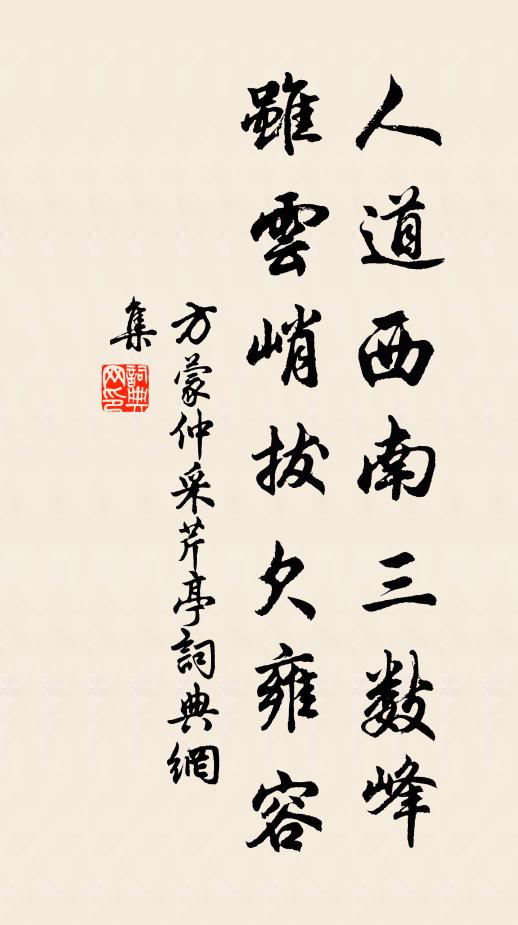 人道西南三数峰
雖雲峭拔欠雍容
方蒙仲采芹亭詞典網
集
詞典
网印